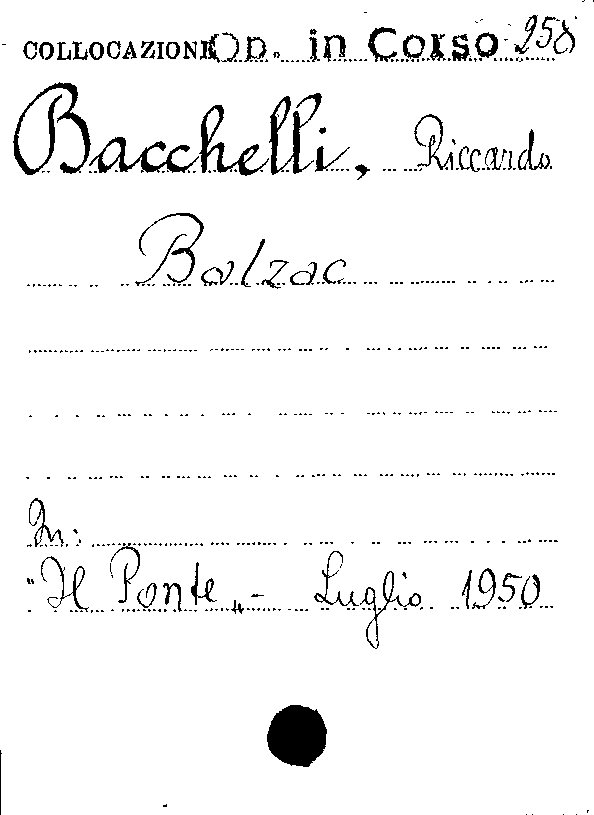 COLLOCAZIONE Op. in Corso 258
Bacchelli, Riccardo
Balzac
In:
"Il Ponte„ - Luglio 1950